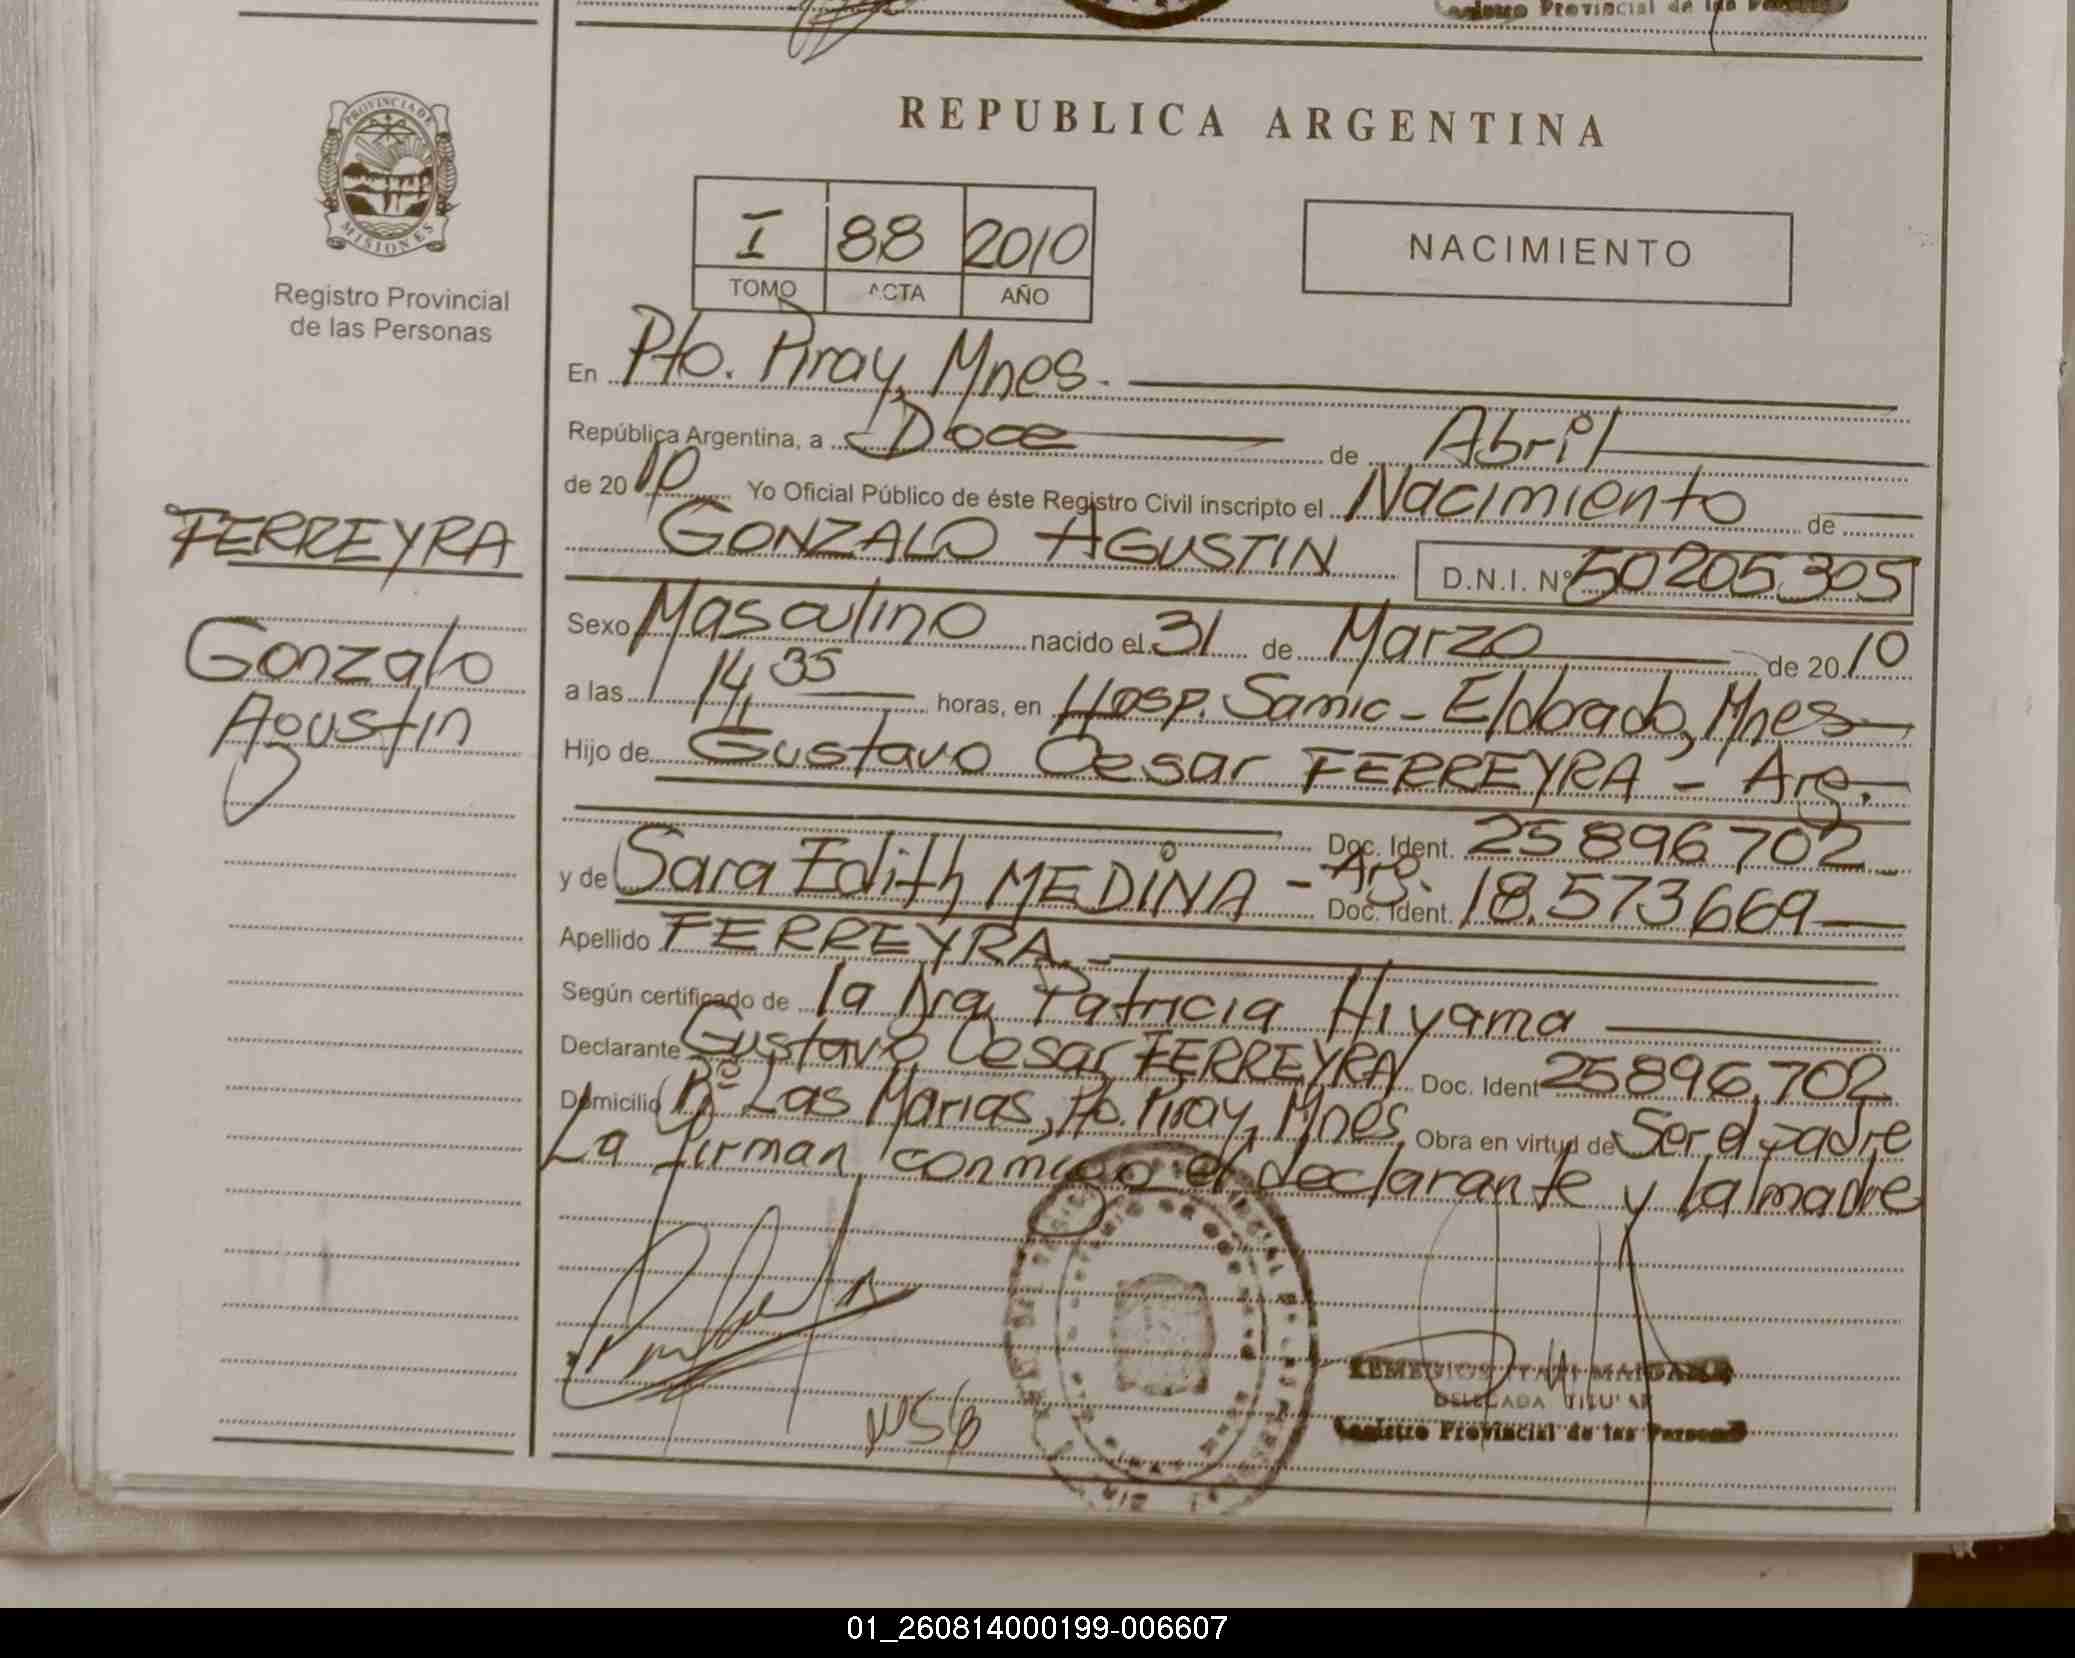 Registro Provincial de las Personas
PROVINCIA DE
MISIONES
Registro Provincial
de las Personas
REPUBLICA ARGENTINA
I 88 2010
TOMO ACTA AÑO
NACIMIENTO
En Pto. Piray, Mnes.
República Argentina, a Doce de Abril
de 2010 Yo Oficial Público de éste Registro Civil inscripto el Nacimiento de
GONZALO AGUSTIN D.N.I. Nº 50205305
FERREYRA
Gonzalo
Agustin
Sexo Masculino nacido el 31 de Marzo de 2010
a las 14,35 horas, en Hosp. Samic - Eldorado, Mnes
Hijo de Gustavo Cesar FERREYRA - Arg.
Doc. Ident. 25896702
y de Sara Edith MEDINA - Arg. Doc. Ident. 18.573669
Apellido FERREYRA.-
Según certificado de la Dra Patricia Hiyama
Declarante Gustavo Cesar FERREYRA Doc. Ident 25896.702
Domicilio Bº Las Marias, Pto. Piray, Mnes Obra en virtud de Ser el padre
La firman conmigo el declarante y la madre
DELEGADA TITULAR
Registro Provincial de las Personas
01_260814000199-006607